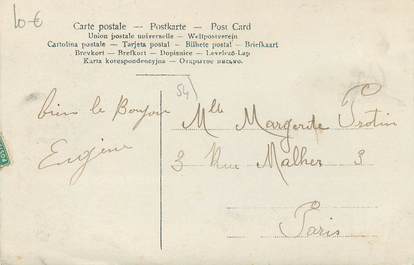 10 €
Carte postale — Postkarte — Post Card
Union postale universelle — Weltpostverein
Cartolina postale — Tarjeta postal — Bilhete postal — Briefkaart
Brevkort — Brefkort — Dopisnice — Levelező-Lap
Karta korespondencyjna — Открытое письмо.
54
bien le Bonjour
Eugène
Mlle Margerite Protin
3 Rue Malher 3
Paris